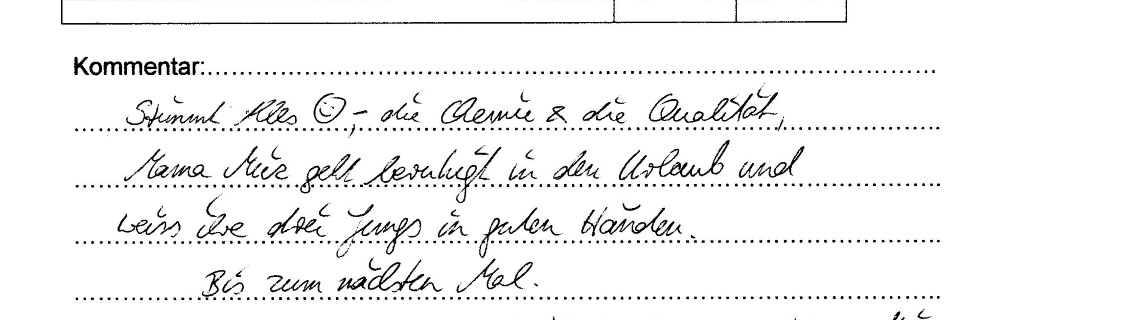 Kommentar:
Stimmt Alles ☺, – die Chemie & die Qualität,
Mama geht beruhigt in den Urlaub und
weiss ihre drei Jungs in guten Händen.
Bis zum nächsten Mal.